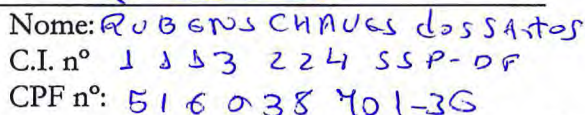 Nome: RUBENS CHAVES dos SANTOS
C.I. nº 1113 224 SSP-DF
CPF nº: 516 038 701-36